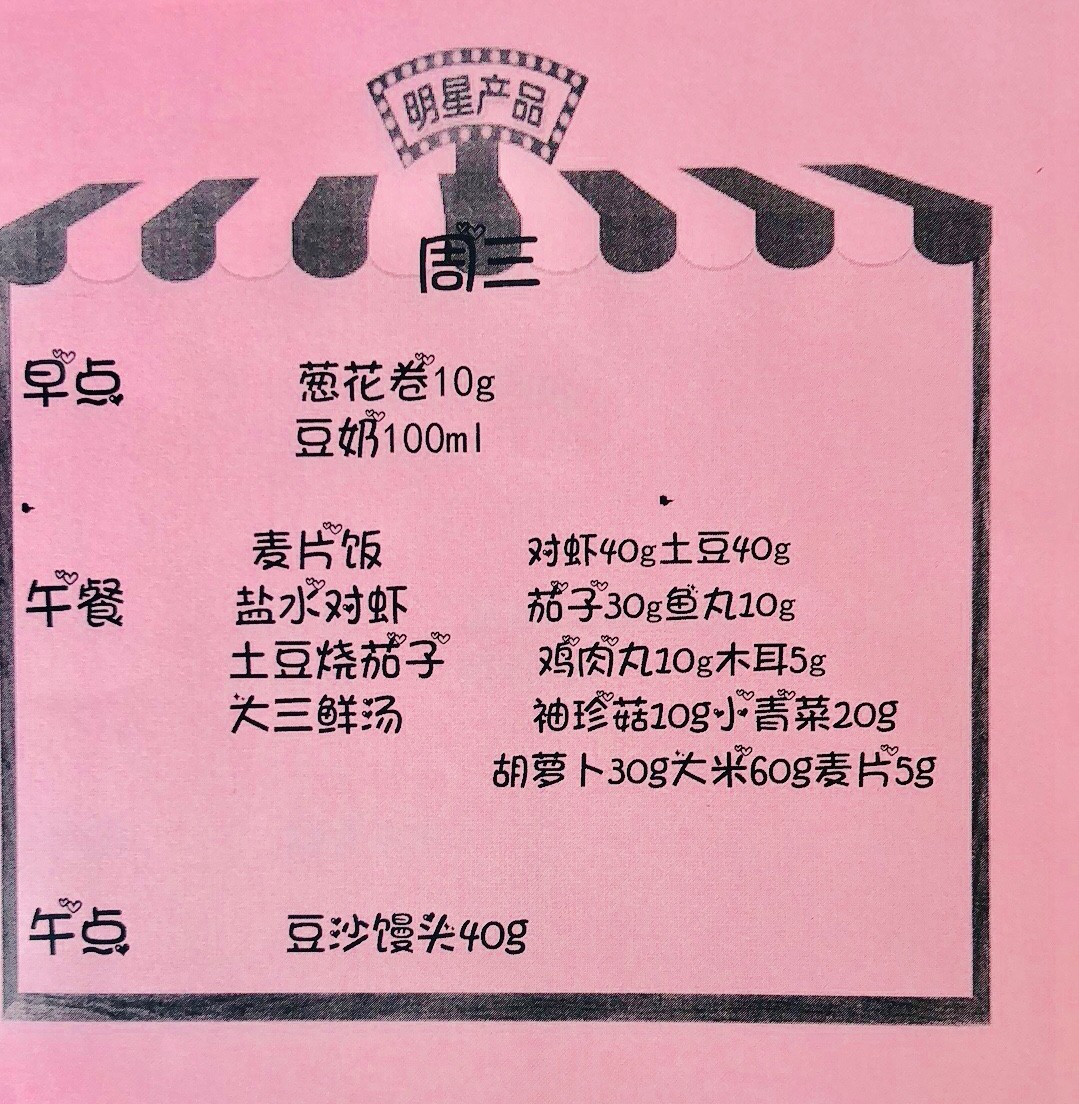 明星产品
周三
早点 葱花卷10g
豆奶100ml
麦片饭 对虾40g土豆40g
午餐 盐水对虾 茄子30g鱼丸10g
土豆烧茄子 鸡肉丸10g木耳5g
大三鲜汤 袖珍菇10g小青菜20g
胡萝卜30g大米60g麦片5g
午点 豆沙馒头40g